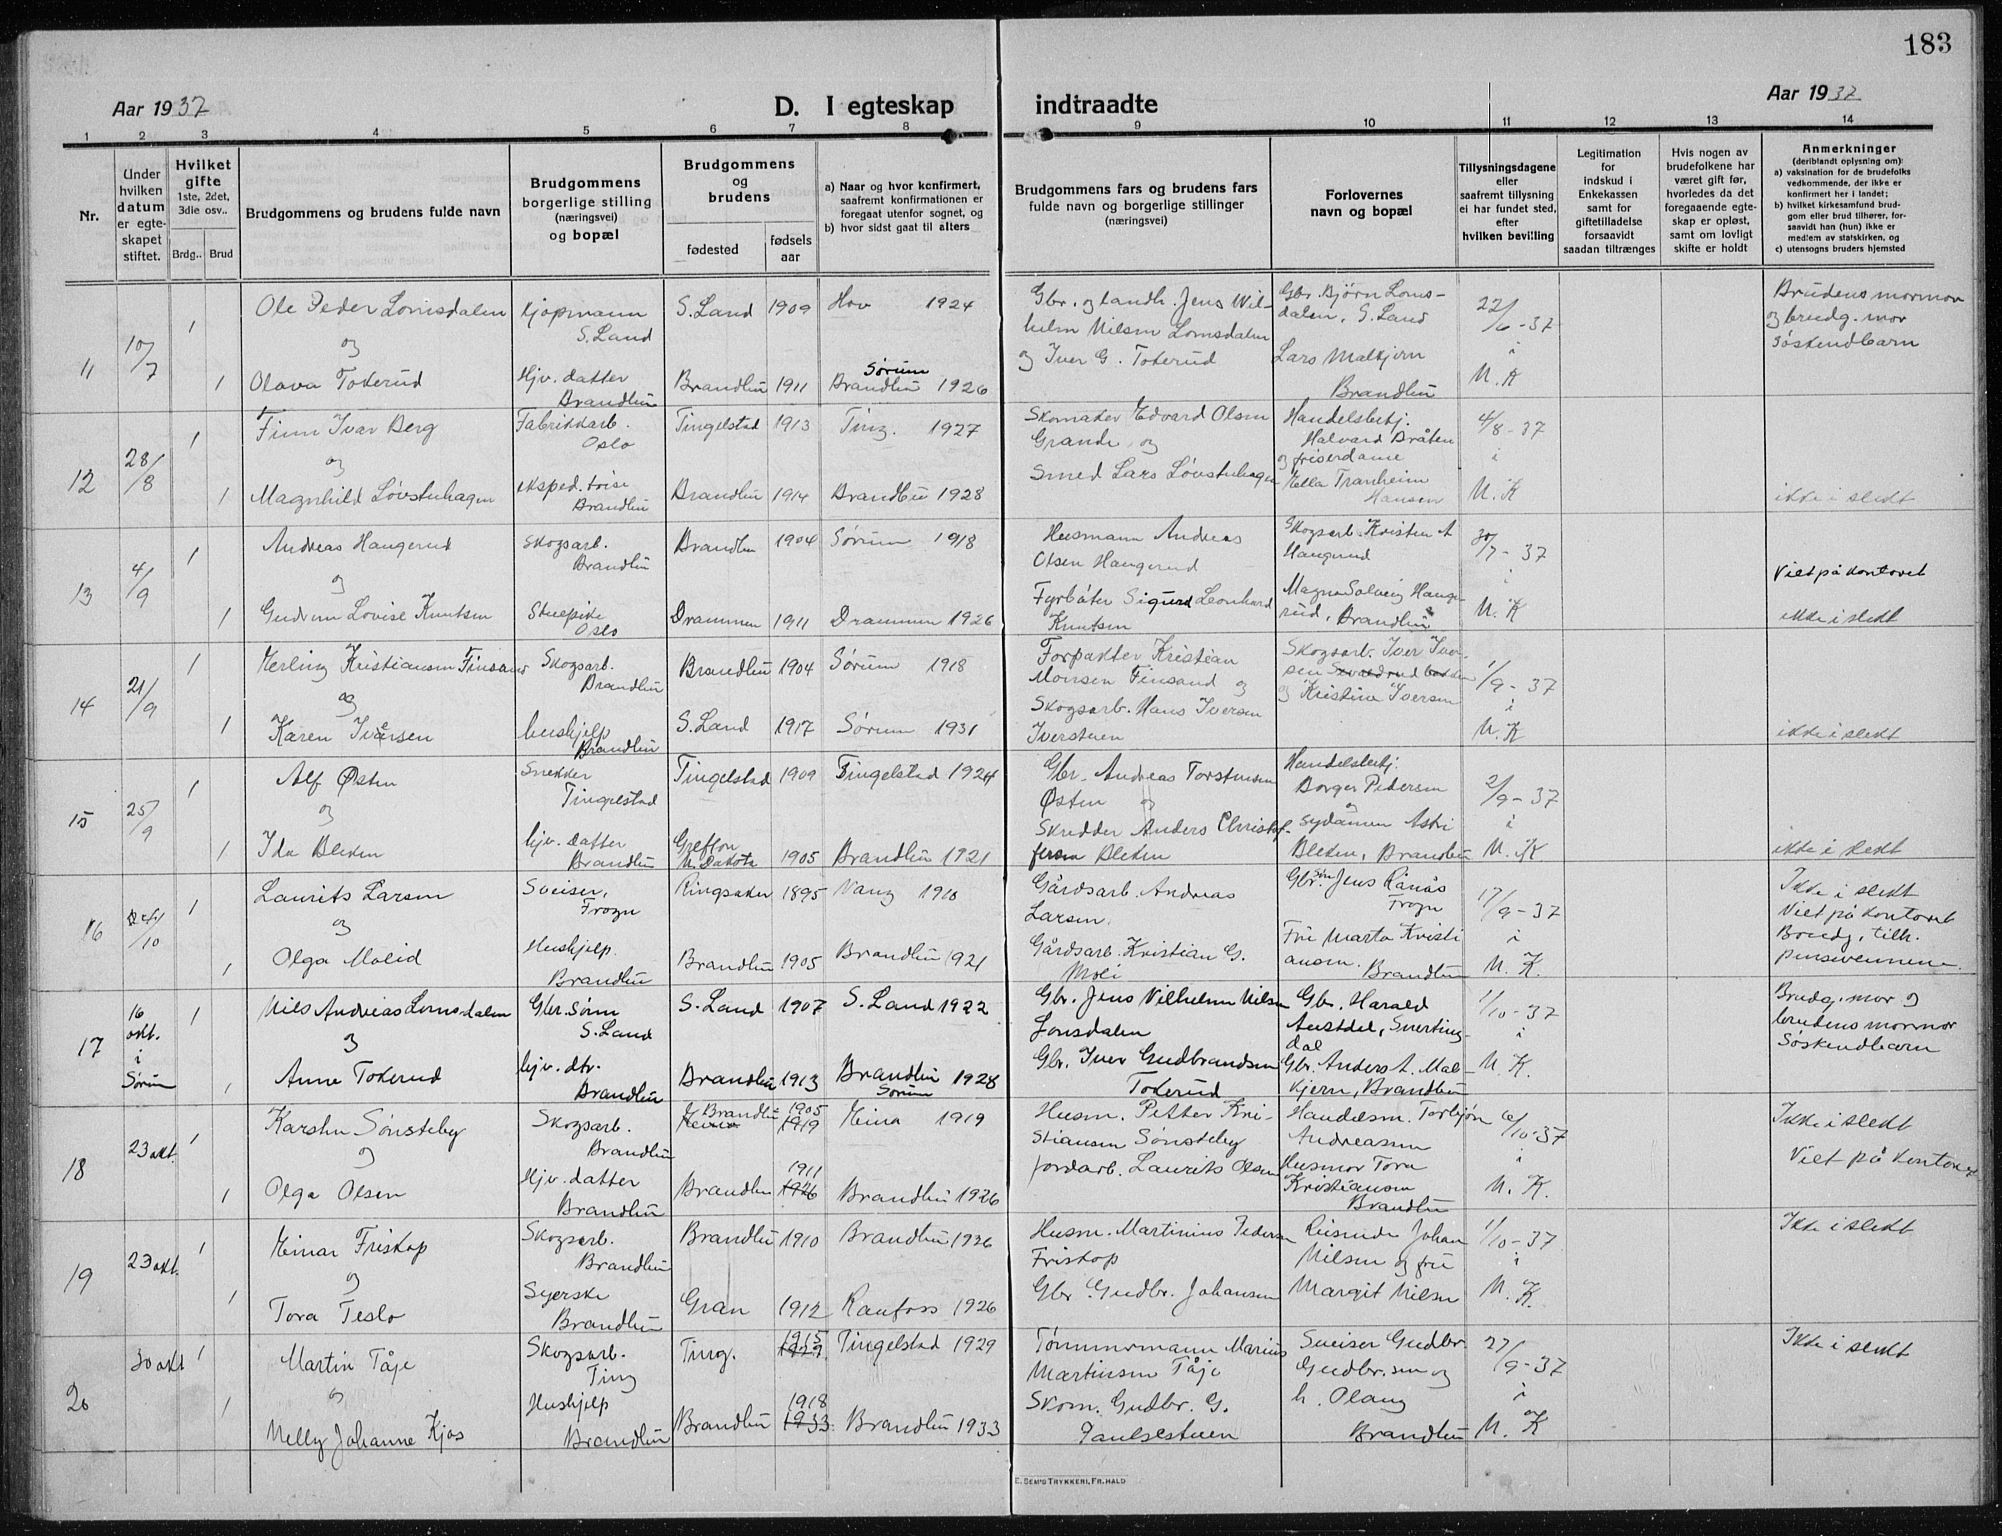 183
Aar 1937
D. I egteskap indtraadte
Aar 1937
1 2 3 4 5 6 7 8 9 10 11 12 13 14
Nr.
Under hvilken datum er egteskapet stiftet.
Hvilket gifte 1ste, 2det, 3die osv..
Brdg.. Brud
Brudgommens og brudens fulde navn
Brudgommens borgerlige stilling (næringsvei) og bopæl
Brudgommens og brudens
fødested
fødsels aar
a) Naar og hvor konfirmert, saafremt konfirmationen er foregaat utenfor sognet, og
b) hvor sidst gaat til alters
Brudgommens fars og brudens fars fulde navn og borgerlige stillinger (næringsvei)
Forlovernes navn og bopæl
Tillysningsdagene eller saafremt tillysning ei har fundet sted, efter hvilken bevilling
Legitimation for indskud i Enkekassen samt for giftetilladelse forsaavidt saadan tiltrænges
Hvis nogen av brudefolkene har været gift før, hvorledes da det foregaaende egteskap er opløst, samt om lovligt skifte er holdt
Anmerkninger (deriblandt oplysning om):
a) vaksination for de brudefolks vedkommende, der ikke er konfirmert her i landet;
b) hvilket kirkesamfund brudgom eller brud tilhører, forsaavidt han (hun) ikke er medlem av statskirken, og
c) utensogns bruders hjemsted
11 10/7 1 Ole Peder Lomsdalen Kjøpmann S. Land S. Land 1909 Hov 1924 Gbr. og landh. Jens Wilhelm Nilsen Lomsdalen Gbr. Bjørn Lomsdalen, S. Land 22/6-37 Brudens mormor og brudg. mor søskendbarn
og
1 Olava Tokerud Hjv. datter Brandbu Brandbu 1911 Sørum Brandbu 1926 og Iver G. Tokerud Lars Malkjern Brandbu i U. K
12 28/8 1 Finn Ivar Berg Fabrikkarb. Oslo Tingelstad 1913 Ting. 1927 Skomaker Edvard Olsen Grande og Handelsbetj. Halvard Bråten og friserdame 4/8-37
og
1 Magnhild Løvstuhagen eksped.trise Brandbu Brandbu 1914 Brandbu 1928 Smed Lars Løvstuhagen Ella Tranheim Hansen i U. K ikke i slekt
13 4/9 1 Andreas Haugerud Skogsarb. Brandbu Brandbu 1904 Sørum 1918 Husmann Andreas Olsen Haugerud Skogsarb. Kristen A Haugerud 30/7-37 Viet på kontoret
og
1 Gudrun Lovise Knutsen Stuepike Oslo Drammen 1911 Drammen 1926 Fyrbøter Sigurd Leonhard Knutsen Magna Solveig Haugerud, Brandbu i U. K ikke i slekt
14 21/9 1 Herling Kristiansen Finsand Skogsarb. Brandbu Brandbu 1904 Sørum 1918 Forpakter Kristian Monsen Finsand og Skogsarb. Iver Iversen 1/9-37
og
1 Karen Iversen hushjelp Brandbu S. Land 1917 Sørum 1931 Skogsarb. Hans Iversen Iverstuen og Kristine Iversen i U. K ikke i slekt
15 25/9 1 Alf Østen Snekker Tingelstad Tingelstad 1909 Tingelstad 1924 Gbr. Andreas Torstensen Østen og Handelsbetj. Borger Pedersen 2/9-37
og
1 Ida Bleken hjv. datter Brandbu Grefton N. Dakota 1905 Brandbu 1921 Skredder Anders Christoffersen Bleken og sydamen Astri Bleken, Brandbu i U. K ikke i slekt
16 24/10 1 Laurits Larsen Sveiser, Frogn Ringsaker 1895 Vang 1910 Gårdsarb. Andreas Larsen. Gbr. Jens Rånås Frogn 17/9-37 Ikke i slekt Viet på kontoret
og
1 Olga Moleid Hushjelp Brandbu Brandbu 1905 Brandbu 1921 Gårdsarb. Kristian G. Molei Fru Marta Kristiansen. Brandbu i U. K. Brudg. tilh. pinsevennene
17 16 okt. i Sørum 1 Nils Andreas Lomsdalen Gbr. Sønn S. Land S. Land 1907 S. Land 1922 Gbr. Jens Vilhelm Nilsen Lonsdalen Gbr. Harald Austdal, Snertingdal 1/10-37 Brudg. mor og brudens mormor Søskendbarn
og
1 Anne Tokerud hjv. dtr. Brandbu Brandbu 1913 Brandbu Sørum 1928 Gbr. Iver Gudbrandsen Tokerud Gbr. Anders A. Malkjern, Brandbu i U. K.
18 23 okt. 1 Karsten Sønsteby Skogsarb. Brandbu Brandbu 1905 1919 Heina 1919 Husm. Petter Kristiansen Sønsteby Handelsm. Torbjørn Andreassen 6/10-37 Ikke i slekt
og
1 Olga Olsen Hjv. datter Brandbu Brandbu 1911 1926 Brandbu 1926 Jordarb. Laurits Olsen Husmor Tora Kristiansen Brandbu i U. K. Viet på kontoret
19 23 okt. 1 Heinar Friskop Skogsarb. Brandbu Brandbu 1910 Brandbu 1926 Husm. Martinius Pedersen Friskop Reisende Johan Nilsen og fru 1/10-37 Ikke i slekt
og
1 Tora Teslo Syerske Brandbu Gran 1912 Raufoss 1926 Gbr. Gudbr. Johansen Margit Nilsen i U. K.
20 30 okt 1 Martin Tåje Skogsarb. Ting Ting. 1915 1929 Tingelstad 1929 Tømmermann Marius Martinsen Tåje Sveiser Gudbr. Gudbr.sen og 27/9-37 Ikke i slekt
og
1 Nelly Johanne Kjos Hushjelp Brandbu Brandbu 1918 1933 Brandbu 1933 Skom. Gudbr. G. Paulsestuen h. Olaug Brandbu i U. K
E. SEM'S TRYKKERI, FR.HALD